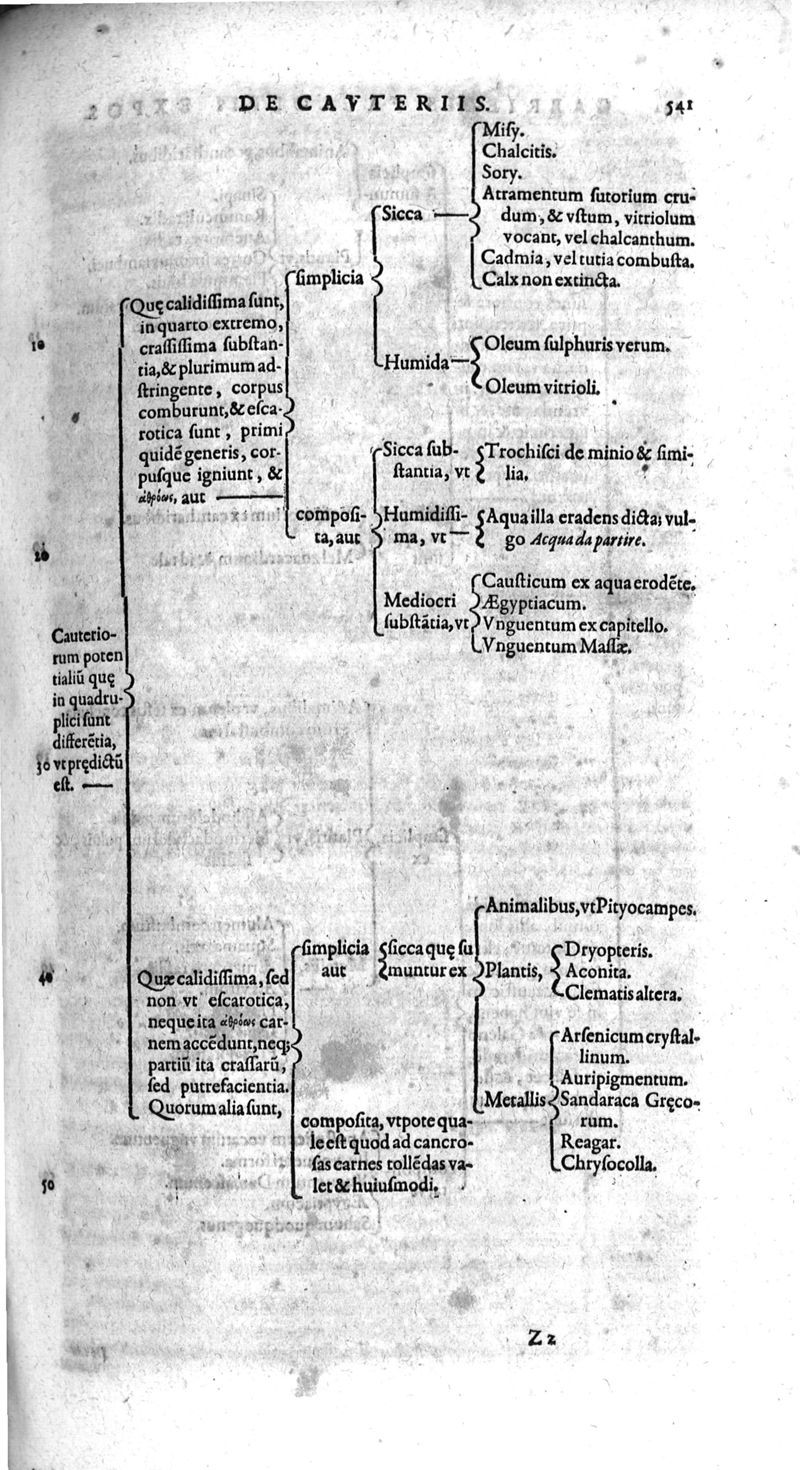 DE CAVTERIIS. 541
Cauterio-
rum poten
tialiũ quę
in quadru-
plici ſunt
differẽtia,
30 vt prędictũ
eſt.
10
Quę calidiſſima ſunt,
in quarto extremo,
craſſiſſima ſubſtan-
tia, & plurimum ad-
ſtringente, corpus
comburunt, & eſca-
rotica ſunt, primi
quidẽ generis, cor-
puſque igniunt, &
ἀθρόως, aut
20
ſimplicia
Sicca
Miſy.
Chalcitis.
Sory.
Atramentum ſutorium cru-
dum, & vſtum, vitriolum
vocant, vel chalcanthum.
Cadmia, vel tutia combuſta.
Calx non extincta.
Humida
Oleum ſulphuris verum.
Oleum vitrioli.
compoſi-
ta, aut
Sicca ſub-
ſtantia, vt
Trochiſci de minio & ſimi-
lia.
Humidiſſi-
ma, vt
Aqua illa eradens dicta; vul-
go Acqua da partire.
Mediocri
ſubſtãtia, vt
Cauſticum ex aqua erodẽte.
Ægyptiacum.
Vnguentum ex capitello.
Vnguentum Maſſæ.
40
Quæ calidiſſima, ſed
non vt eſcarotica,
neque ita ἀθρόως car-
nem accẽdunt, neq;
partiũ ita craſſarũ,
ſed putrefacientia.
Quorum alia ſunt,
50
ſimplicia
aut
ſicca quę ſu
muntur ex
Animalibus, vt Pityocampes.
Plantis,
Dryopteris.
Aconita.
Clematis altera.
Metallis
Arſenicum cryſtal-
linum.
Auripigmentum.
Sandaraca Gręco-
rum.
Reagar.
Chryſocolla.
compoſita, vtpote qua-
le eſt quod ad cancro-
ſas carnes tollẽdas va-
let & huiuſmodi.
Zz